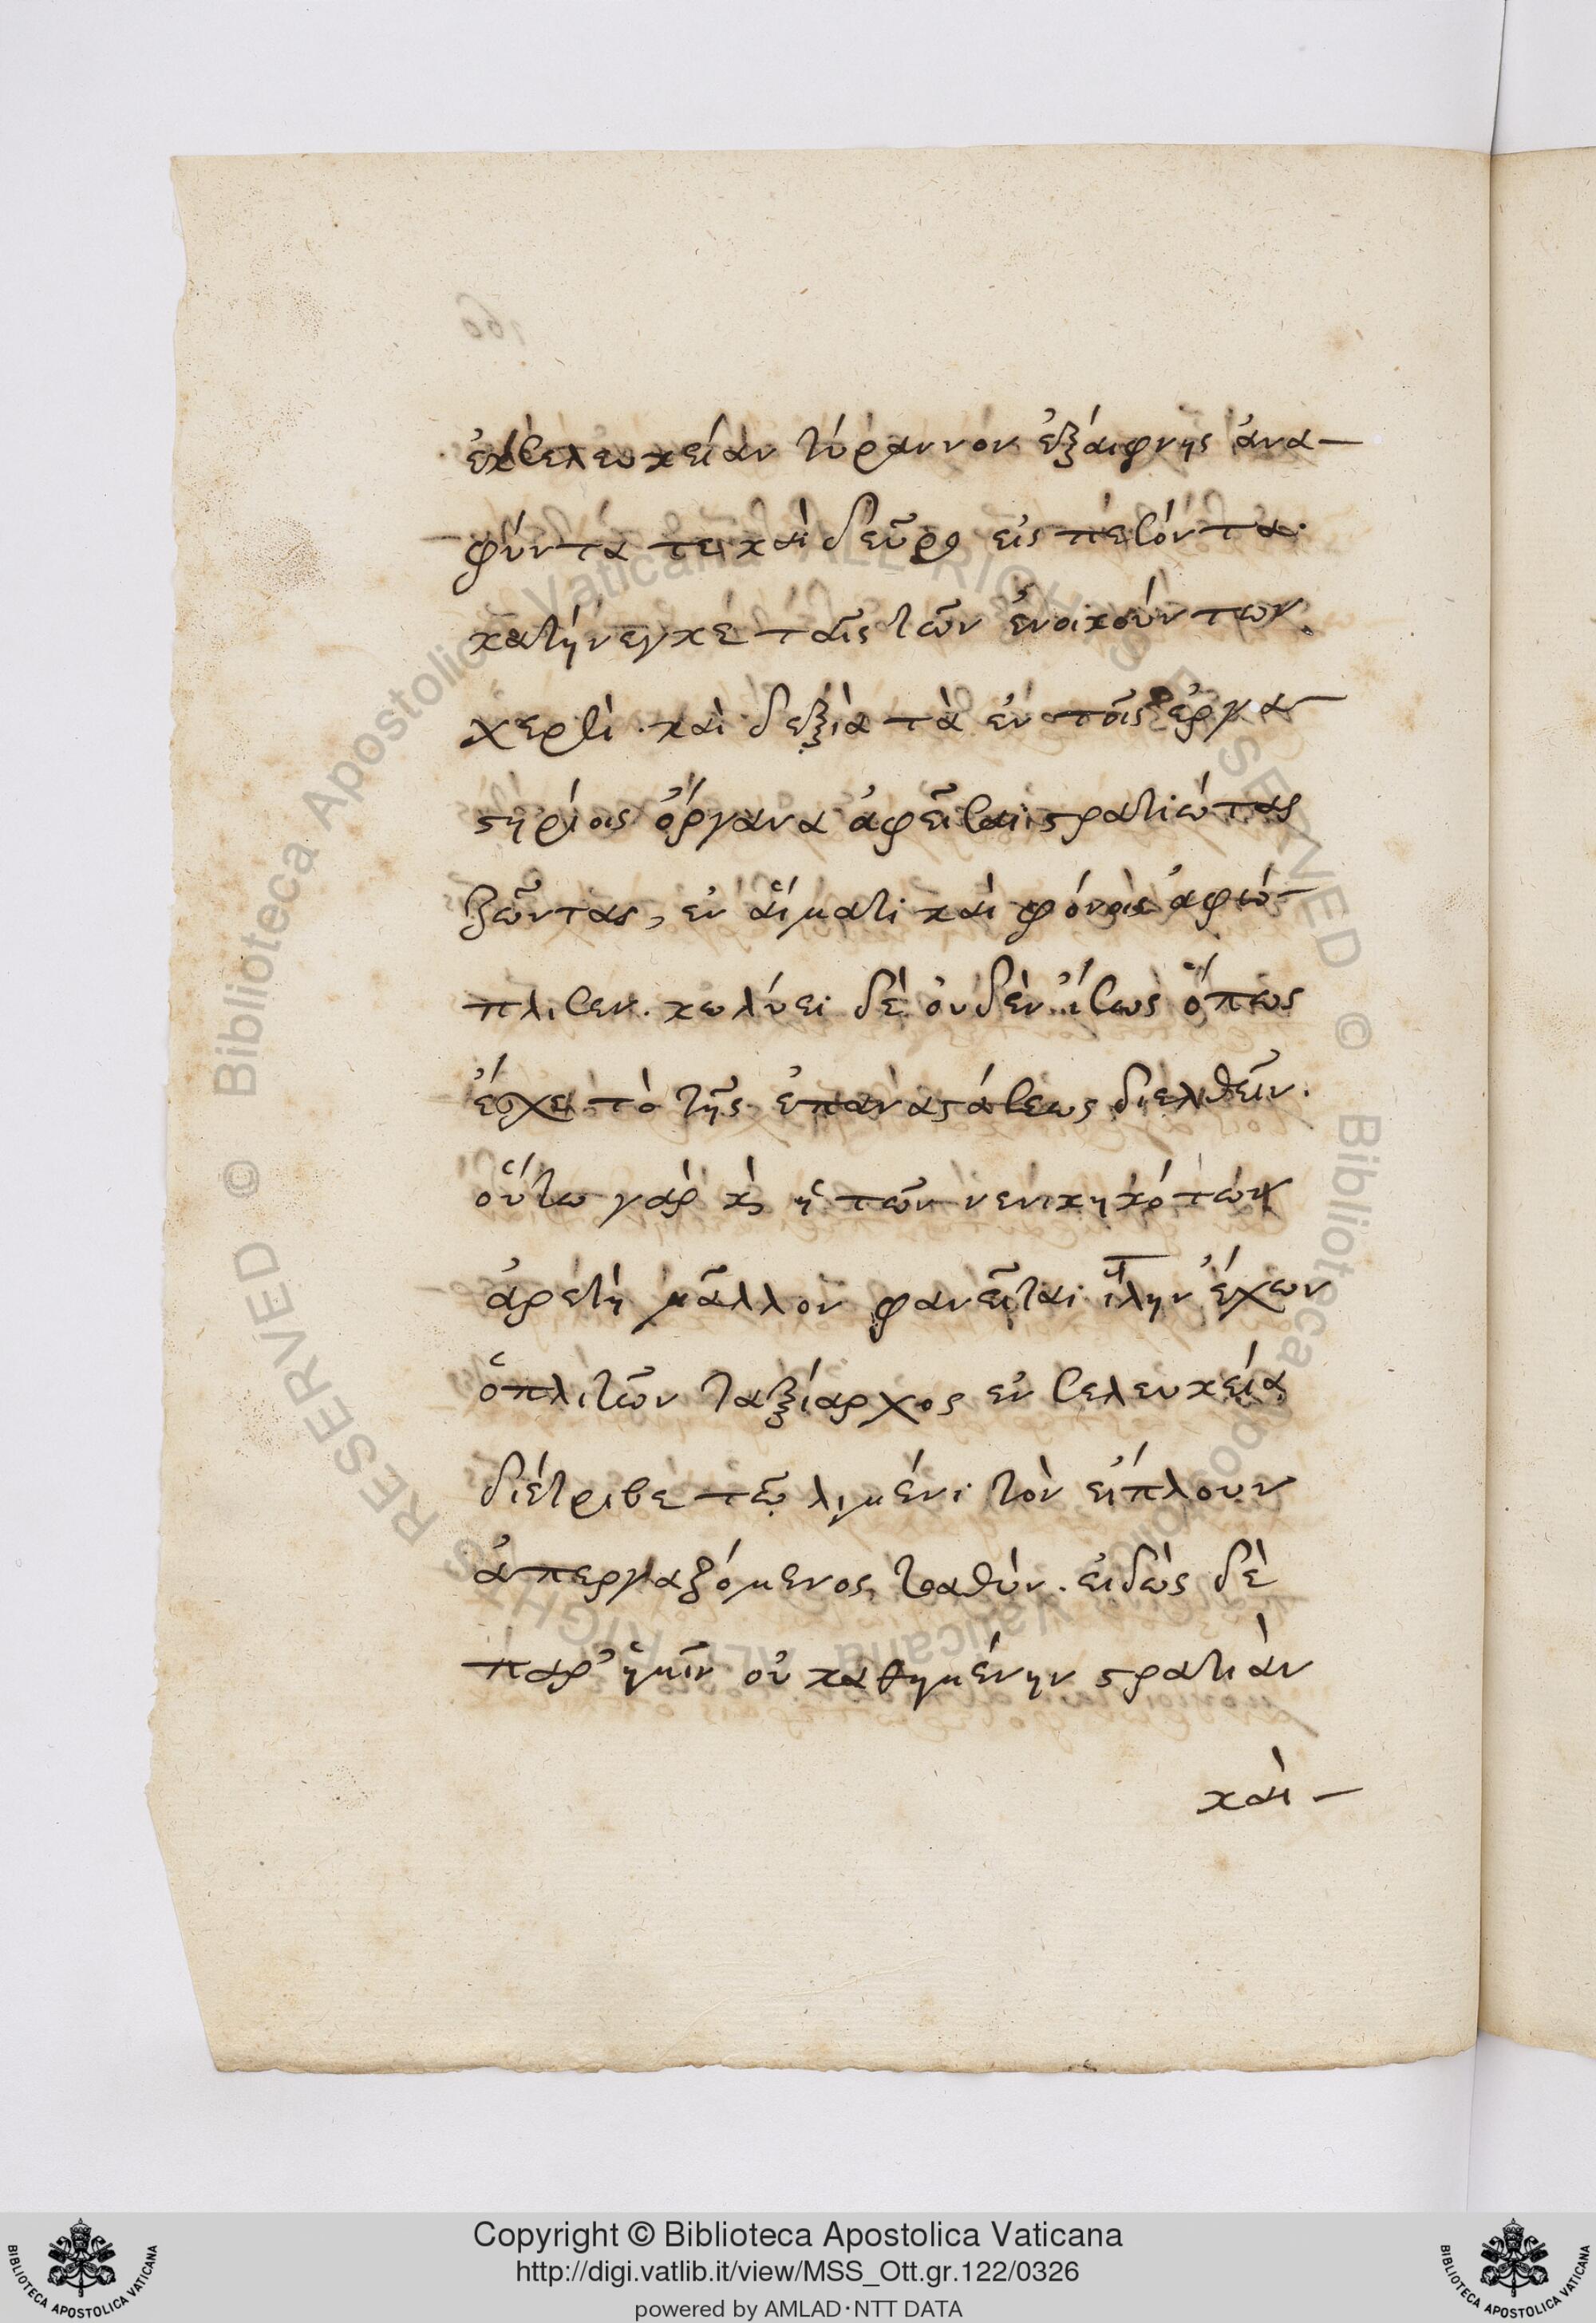 ἐκ σελευκείαν τύραννον ἐξαίφνης ἀνα-
φύντα τε καὶ δεῦρο εἰς πεσόντα·
κατήνεγκε ταῖς τῶν ἐνοικούντων
χερσὶ. καὶ δεξιὰ τὰ ἐν τοῖς ἐργα
στηρίοις ὄργανα ἀφεῖσαι στρατιώτας
ζῶντας, ἐν αἵματι καὶ φόνοις ἀφώ-
πλισεν. κωλύει δὲ οὐδὲν ἴσως ὅπως
ἔσχε τὸ τῆς ἐπαναστάσεως διελθεῖν.
οὕτω γὰρ κὶ ἡ τῶν νενικηκότων
ἀρετὴ μᾶλλον φανεῖται ἴλην ἔχων
ὁπλιτῶν ταξίαρχος ἐν σελευκεία
διέτριβε τῶ λιμένι τὸν εἴπλουν
ἀπεργαζόμενος βαθύν. εἰδὼς δὲ
παρ' ἡμῖν οὐ καθημένην στρατιὰν
καὶ -
Copyright © Biblioteca Apostolica Vaticana
http://digi.vatlib.it/view/MSS_Ott.gr.122/0326
powered by AMLAD·NTT DATA
BIBLIOTECA APOSTOLICA VATICANA
BIBLIOTECA APOSTOLICA VATICANA
© Biblioteca Apostolica Vaticana ALL RIGHTS RESERVED
© Biblioteca Apostolica Vaticana ALL RIGHTS RESERVED